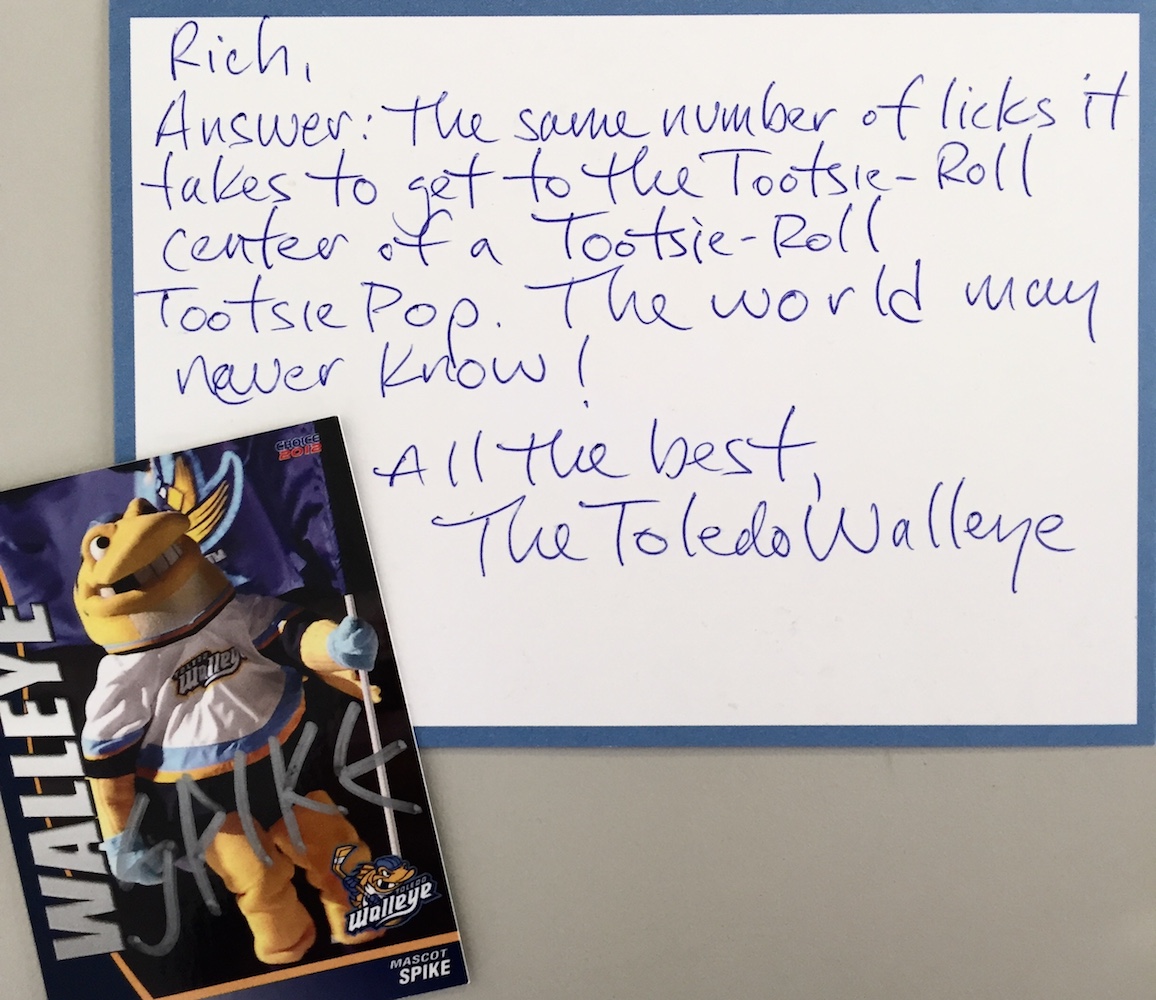 Rich,
Answer: The same number of licks it
takes to get to the Tootsie-Roll
center of a Tootsie-Roll
Tootsie Pop. The world may
never know!
All the best,
The Toledo Walleye
CHOICE
2012
WALLEYE
TOLEDO
Walleye
SPIKE
TOLEDO
Walleye
MASCOT
SPIKE
TM